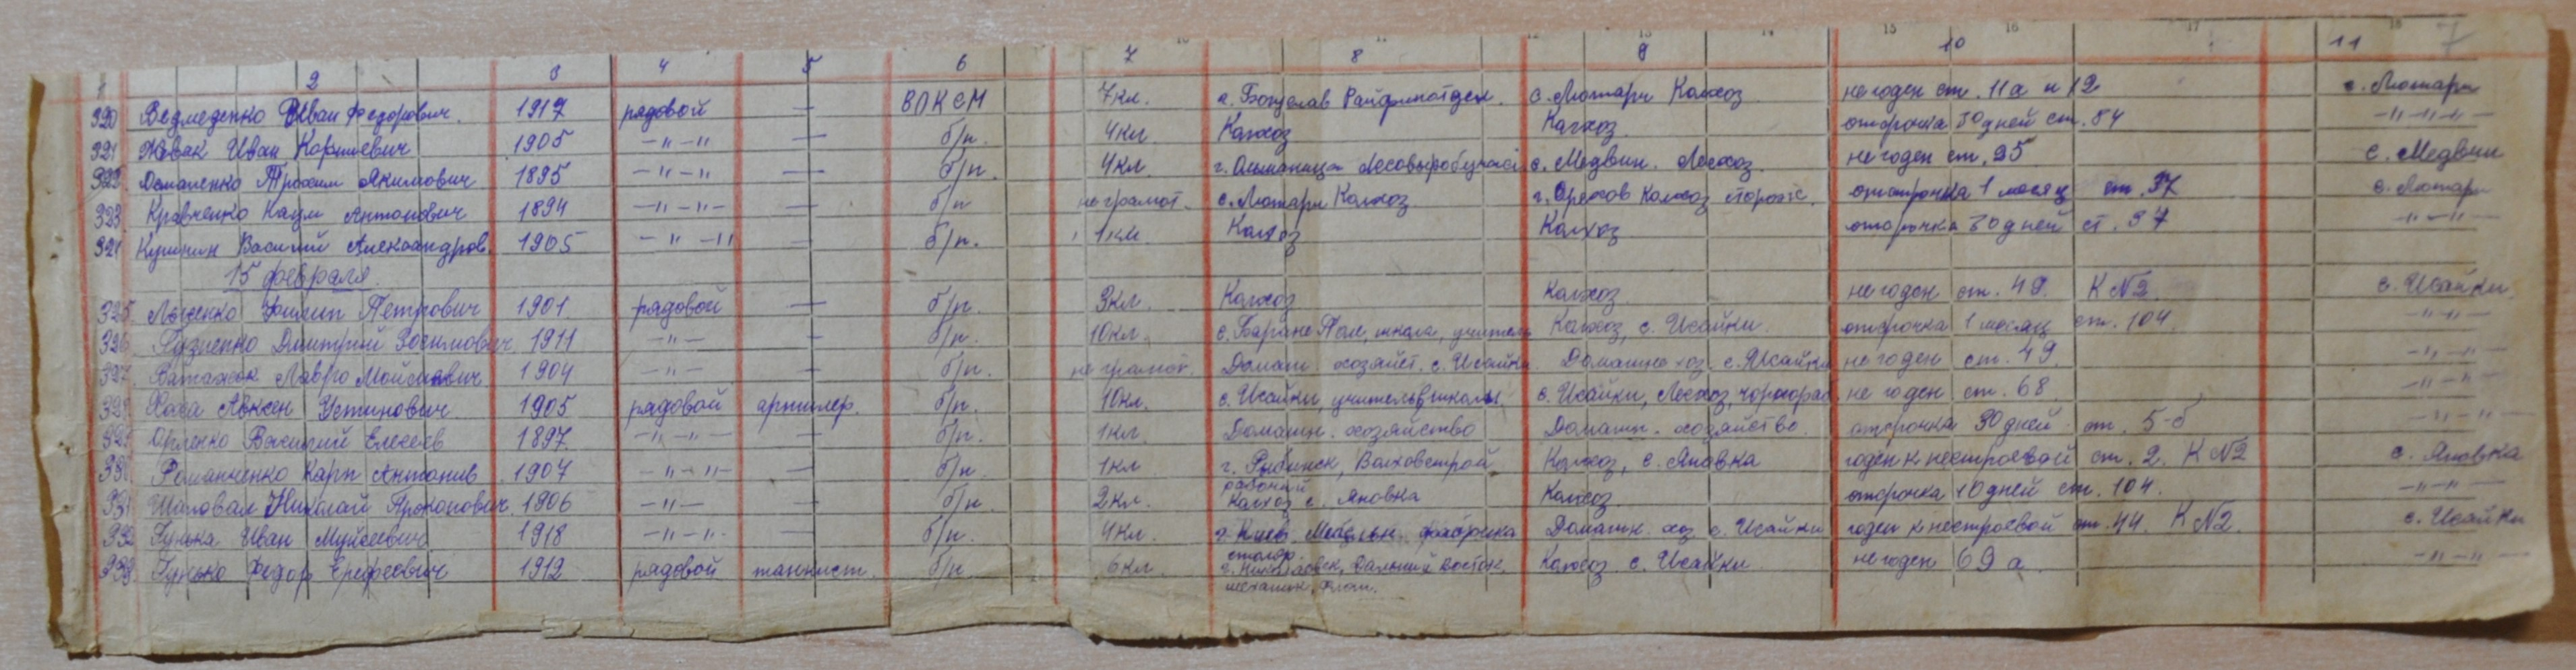 1 2 3 4 5 6 7 8 9 10 11
320 Ведмеденко Иван Федорович. 1917 рядовой — ВЛКСМ 7кл. г. Богуслав Райфинотдел. с. Лютари Колхоз не годен ст. 11а и 12 с. Лютари
321 Новак Иван Корнеевич 1905 —"—" — б/п. 4кл. Колхоз Колхоз. отсрочка 30 дней ст. 84 —"—"—"—
322 Остапенко Трохим Якимович 1895 —"—" — б/п. 4кл. г. с. Медвин. Лесхоз. не годен ст. 25 с. Медвин
323 Кравченко Наум Антонович 1894 —"—"— — б/п неграмот. с. Лютари Колхоз г. Орехов Колхоз сторож. отсрочка 1 месяц ст. 37 с. Лютари
324 Василий Александров. 1905 —"—" — б/п. 1кл Колхоз Колхоз отсрочка 30 дней ст. 37 —"—"—
15 февраля.
325 Филип Петрович 1901 рядовой — б/п. 3кл. Колхоз Колхоз. не годен ст. 49. К №2. с. Исайки.
326 Гузненко Дмитрий Зосимович 1911 —"— — б/п. 10кл. с. Баране Поле, школа, учитель Колхоз, с. Исайки. отсрочка 1 месяц ст. 104. —"—"—
327 Ватажок Лавро Мойсеевич 1904 —"— — б/п. неграмот. Домаш. хозяйст. с. Исайки. Домашнее хоз. с. Исайки не годен ст. 49. —"—"—
328 Авксен Устинович 1905 рядовой артилер. б/п. 10кл. с. Исайки, учитель школы. с. Исайки, Лесхоз, чорнораб. не годен ст. 68. —"—"—
329 Орленко Василий Елесеев 1897. —"—"— — б/п. 1кл. Домашн. хозяйство Домашн. хозяйство. отсрочка 30 дней ст. 5-б —"—"—
330 Романченко Карп Антонив. 1907 —"—"— — б/п. 1кл г. Рыбинск, Волховстрой рабочий Колхоз, с. Яновка годен к нестроевой ст. 2. К №2 с. Яновка
331 Шаповал Николай Прокопович. 1906 —"— — б/п. 2кл. Колхоз с. Яновка Колхоз. отсрочка 10 дней ст. 104. —"—"—
332 Гунька Иван Муйсеевич 1918 —"—"— — б/п. 4кл. г. Киев. Мебельн. фабрика столяр. Домашн. хоз. с. Исайки годен к нестроевой ст. 44. К №2. с. Исайки
333 Гунько Федор Ерофеович 1912 рядовой танкист. б/п. 6кл. г. Николаевск, Дальний Восток, механик. Флот. Колхоз с. Исайки не годен 69 а. —"—"—